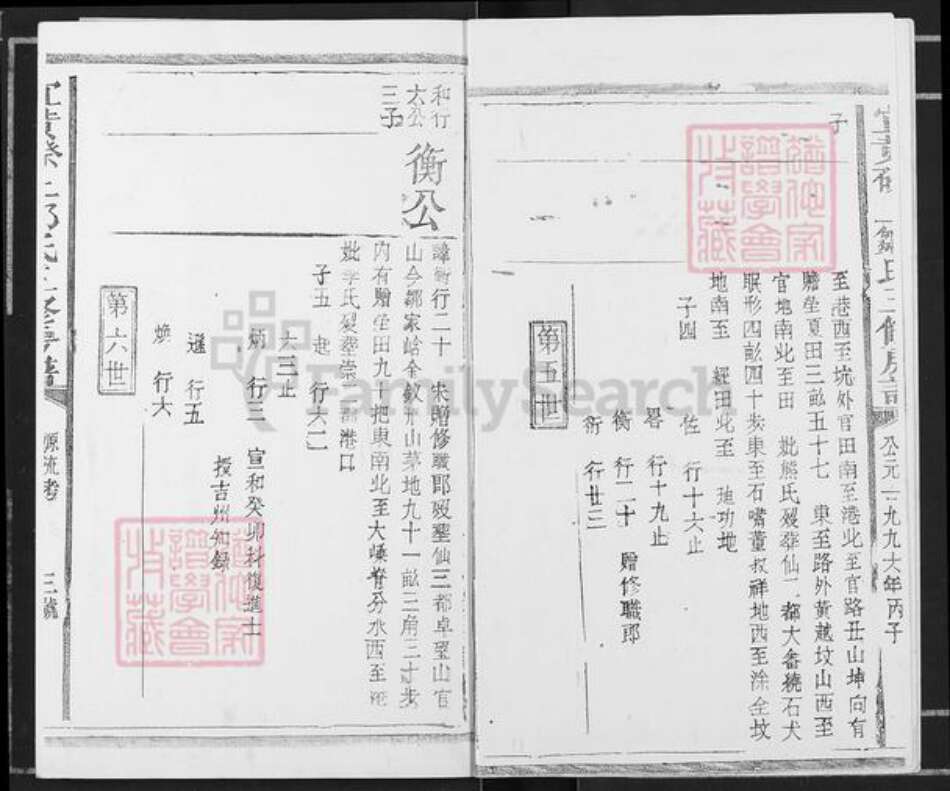 公元一九九六年丙子
子
至港西至坑外官田南至港北至官路丑山坤向有
贍塋夏田三畝五十七 東至路外黃越坟山西至
官地南北至田 妣熊氏歿葬仙二都大番磽石犬
眠形四畝四十步東至石嘴董叔祥地西至涂全坟
地南至 經田北至 廸功地
子四
佐 行十六止
畧 行十九止
衡 行二十 贈修職郎
衍 行廿三
第五世
和行
六公
三子
衡公
諱衡行二十 宋贈修職郎歿塟仙三都卓望山官
山今鄒家 全 山茅地九十一畝三角三十步
內有贍塋田九十把東南北至大 脊分水西至
妣李氏歿塟崇二都港口
子五
行六二
六三止
炳 行三 宣和癸卯科復進士
授吉州知錄
遜 行五
煥 行六
第六世
源流考
三號
譜學會
收藏
FamilySearch